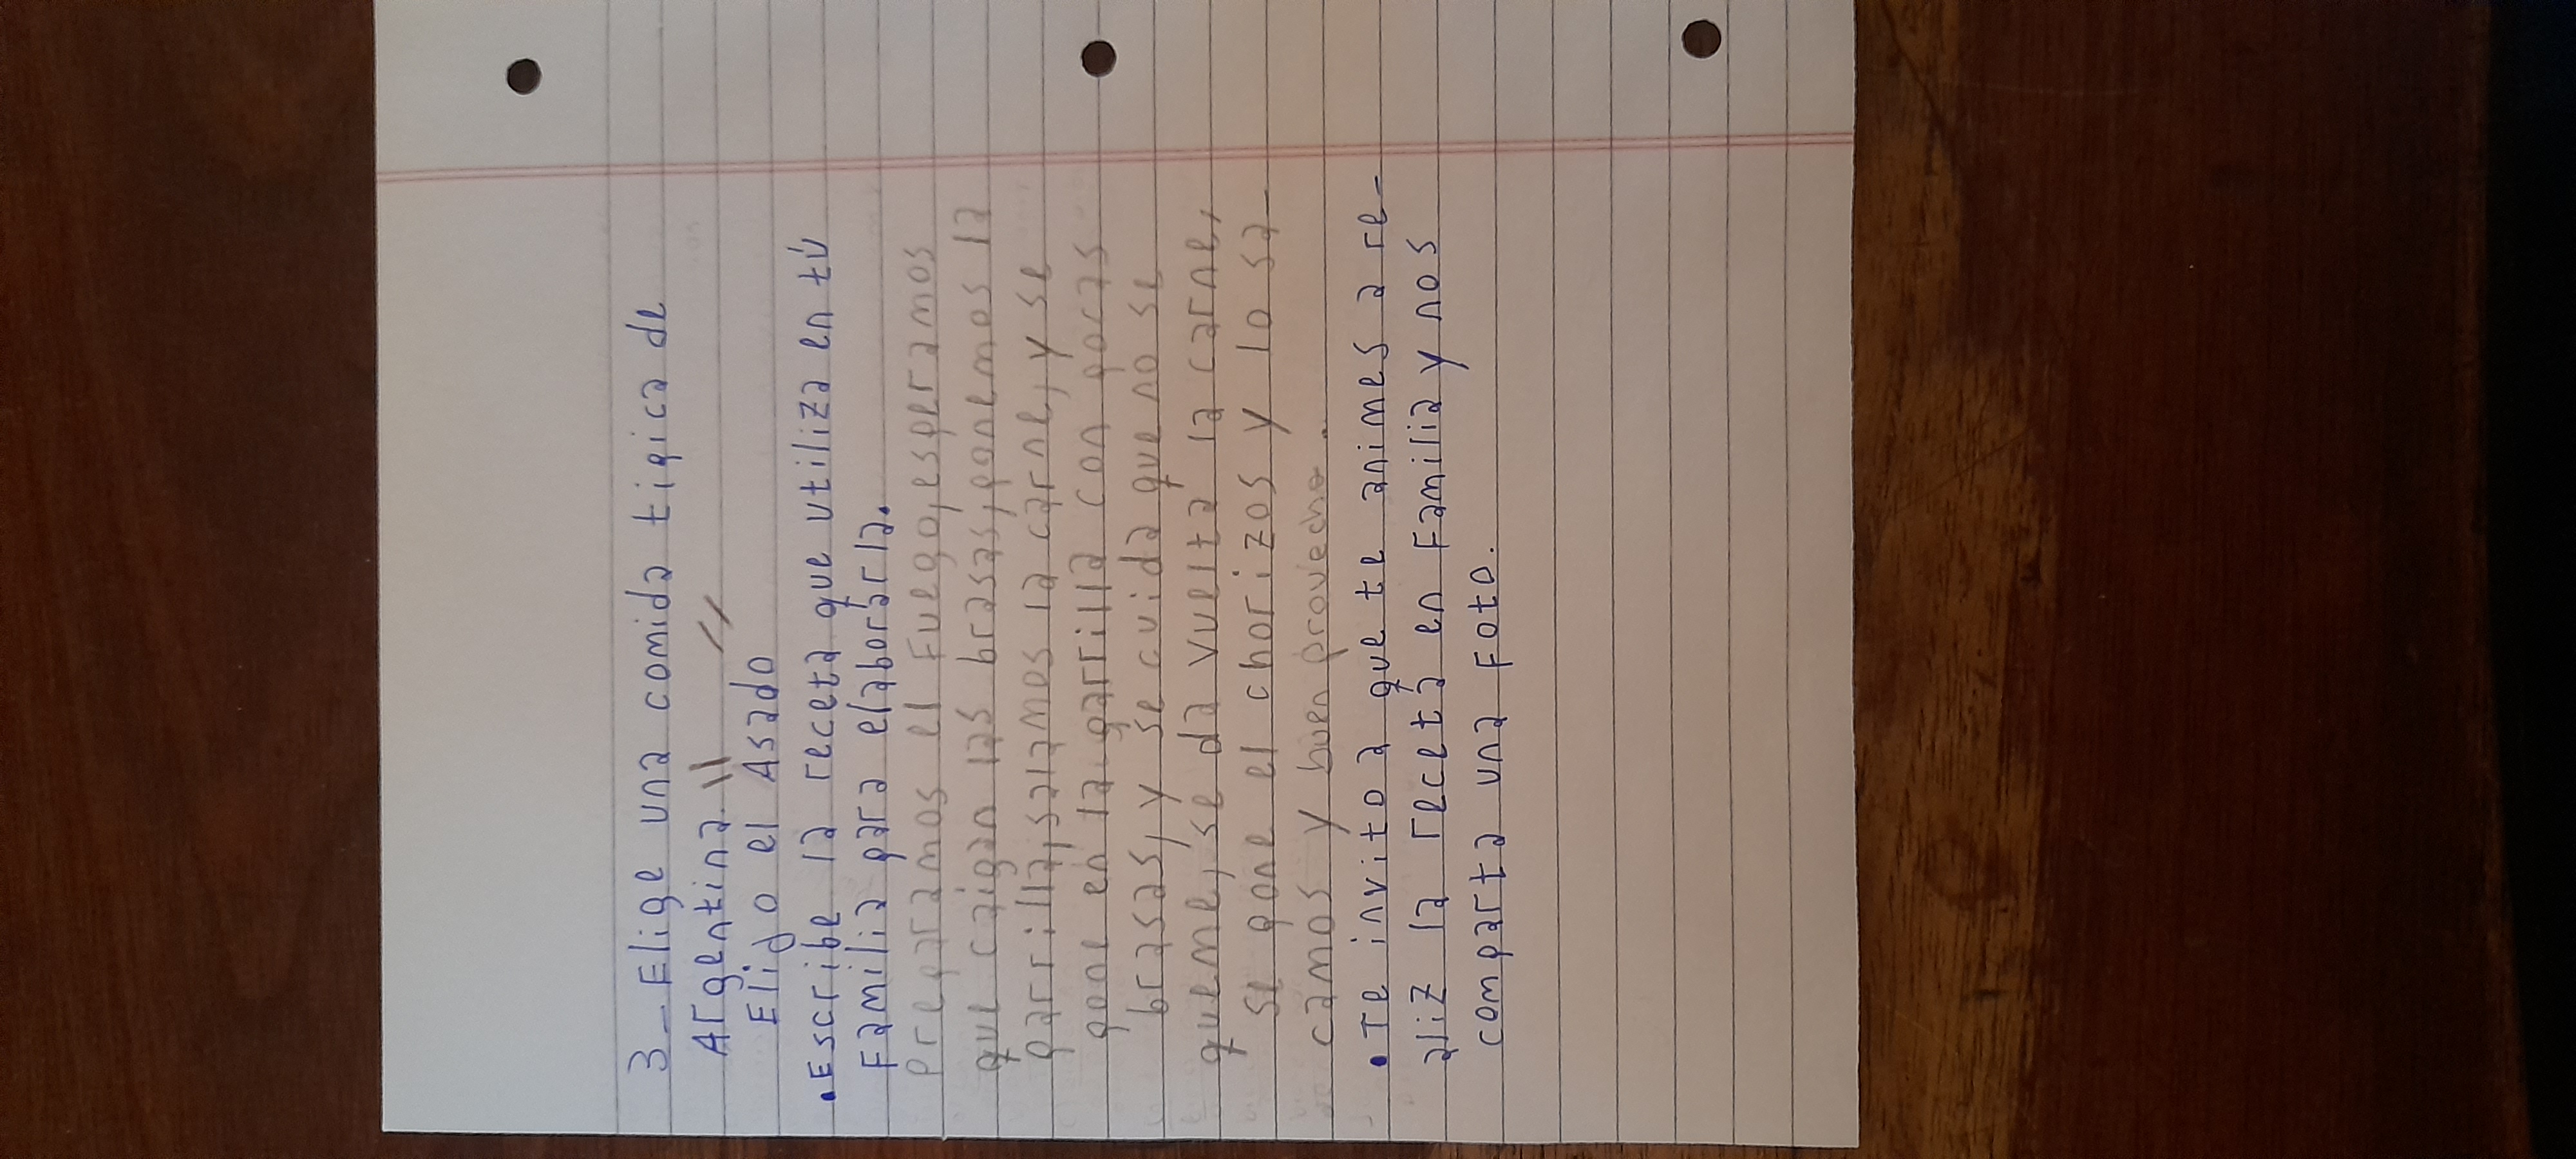 3_ Elige una comida tipica de
Argentina "
Elijo el Asado
• Escribe la receta que utiliza en tú
Familia para elaborarla.
preparamos el Fuego, esperamos
que caigan las brasas, ponemos la
parrilla, salamos la carne, y se
pone en la garrilla con pocas
brasas, y se cuida que no se
queme, se da vuelta la carne,
se pone el chorizos y lo sa-
camos y buen provecho.
• Te invito a que te animes a re-
aliz la receta en Familia y nos
comparta una Foto.